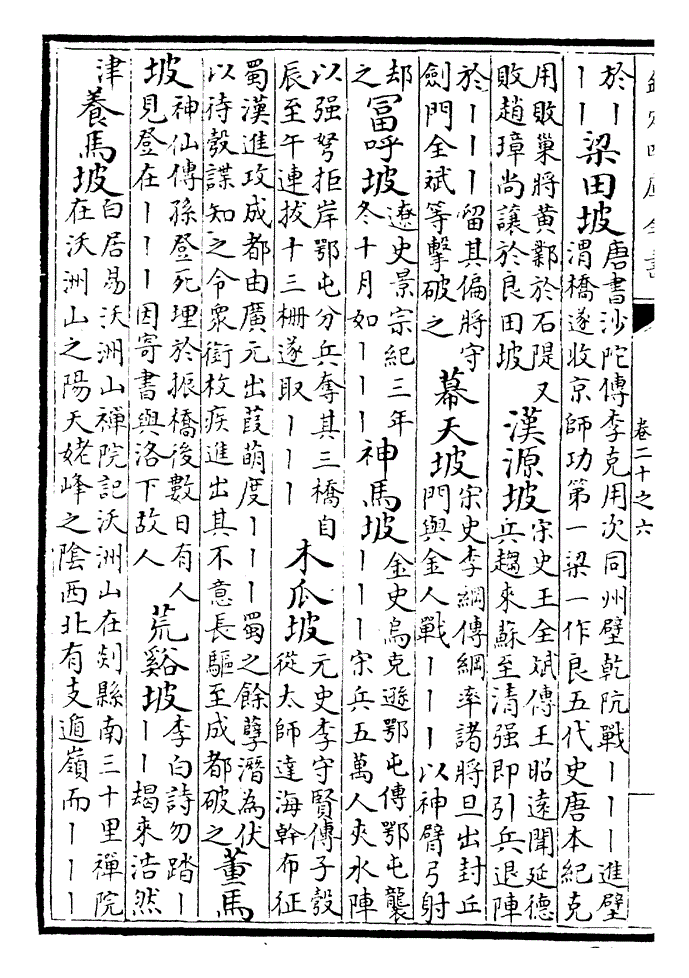 欽定四庫全書
卷二十之六
於丨
丨丨
梁田坡
唐書沙陀傳李克用次同州壁乾阬戰丨丨丨進壁
渭橋遂收京師功第一梁一作良五代史唐本紀克
用敗巢將黄鄴於石隄又
敗趙璋尚讓於良田坡
漢源坡
宋史王全斌傳王昭遠聞延德
兵趨來蘇至清强即引兵退陣
於丨丨丨留其偏將守
劍門全斌等擊破之
幕天坡
宋史李綱傳綱率諸將旦出封丘
門與金人戰丨丨丨以神臂弓射
却
之
冨呼坡
遼史景宗紀三年
冬十月如丨丨丨
神馬坡
金史烏克遜鄂屯傳鄂屯襲
丨丨丨宋兵五萬人夾水陣
以强弩拒岸鄂屯分兵奪其三橋自
辰至午連拔十三柵遂取丨丨丨
木瓜坡
元史李守賢傳子嗀
從太師達海幹布征
蜀漢進攻成都由廣元出葭萌度丨丨丨蜀之餘孽潛為伏
以待嗀諜知之令衆銜枚疾進出其不意長驅至成都破之
董馬
坡
神仙傳孫登死埋於振橋後數日有人
見登在丨丨丨因寄書與洛下故人
荒谿坡
李白詩勿踏丨
丨丨朅來浩然
津
養馬坡
白居易沃洲山禪院記沃洲山在剡縣南三十里禪院
在沃洲山之陽天姥峰之隂西北有支遁嶺而丨丨丨